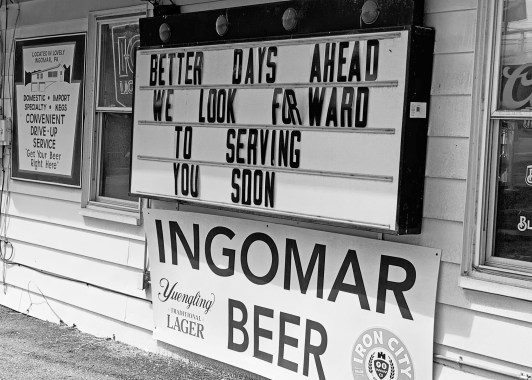 LOCATED IN LOVELY
INGOMAR, PA
DOMESTIC • IMPORT
SPECIALTY • KEGS
CONVENIENT
DRIVE-UP
SERVICE
"Get Your Beer
Right Here"
BETTER DAYS AHEAD
WE LOOK FORWARD
TO SERVING
YOU SOON
INGOMAR
BEER
Yuengling
TRADITIONAL
LAGER
IRON CITY